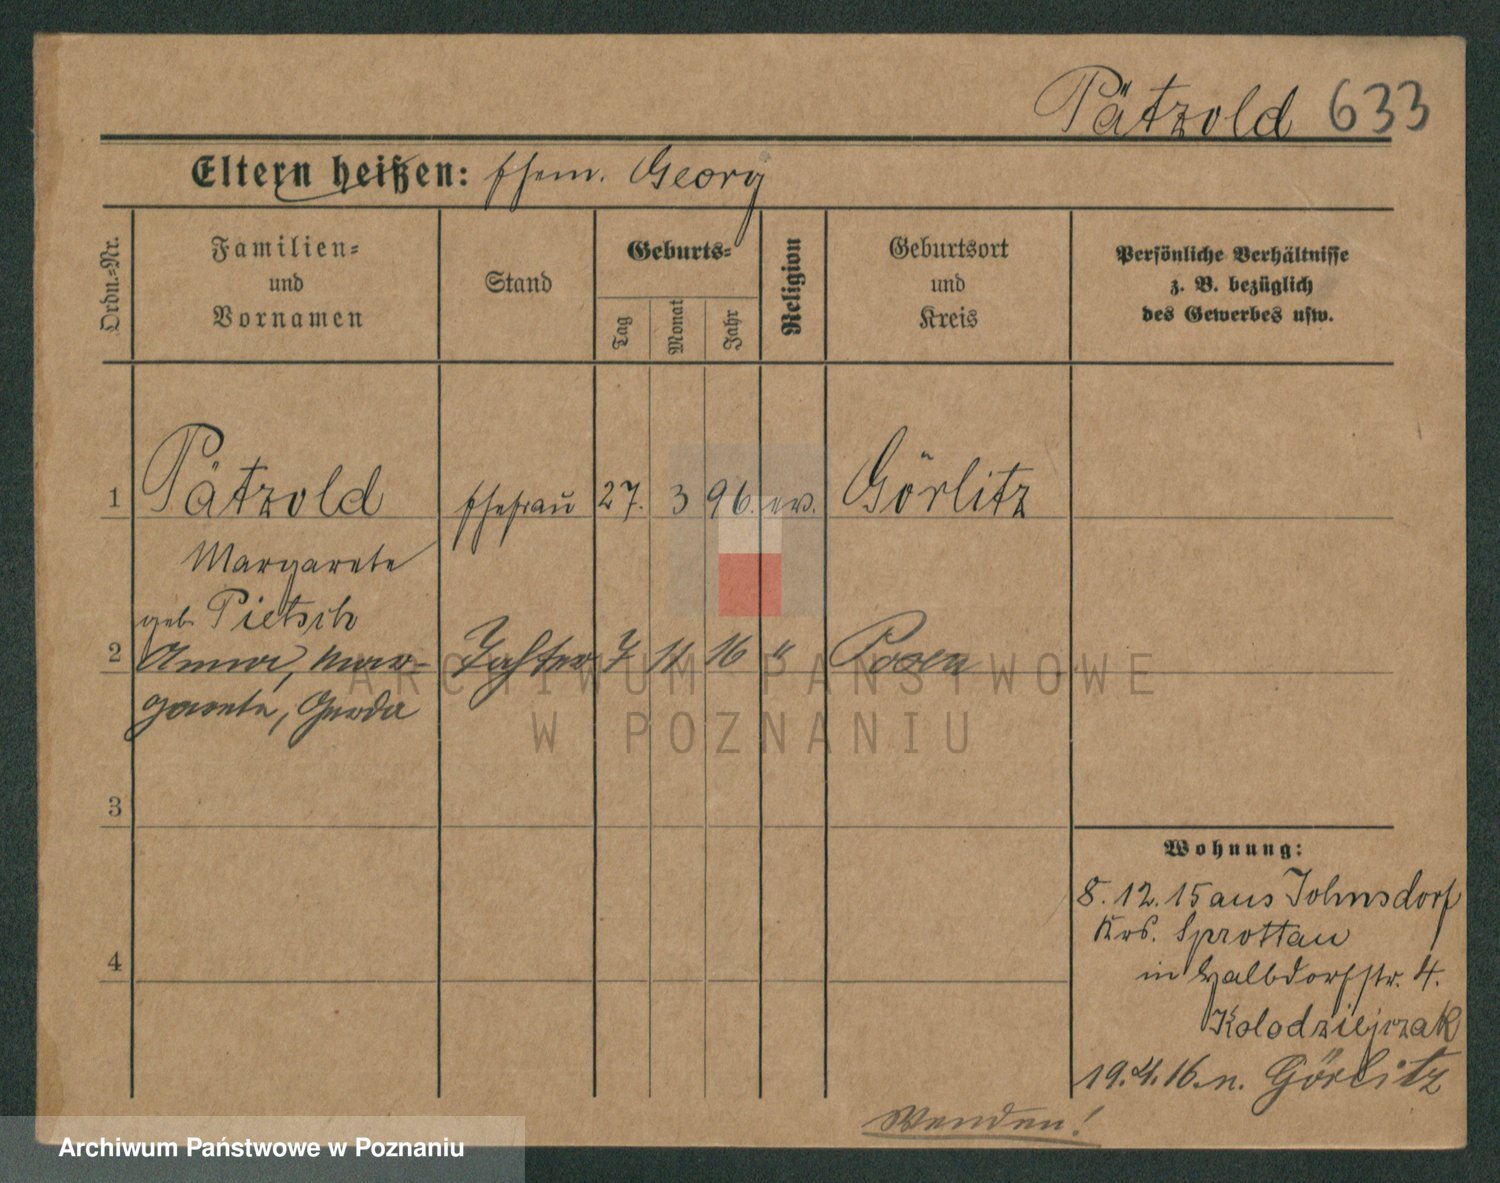 Pätzold 633
Eltern heißen: Ehem. Georg
Ordn.-Nr.
Familien-
und
Vornamen
Stand
Geburts-
Tag
Monat
Jahr
Religion
Geburtsort
und
Kreis
Persönliche Verhältnisse
z. B. bezüglich
des Gewerbes usw.
1 Pätzold Ehefrau 27. 3 96. ev. Görlitz
Margarete
geb. Pietsch
2 Anna, Mar- Tochter 7 11 16 " Posen
garete, Gerda
3
4
Wohnung:
8. 12. 15 aus Johnsdorf
Krs. Sprottau
in Halbdorfstr. 4.
Kolodziejczak
19. 4. 16. n. Görlitz
Wenden!
ARCHIWUM PAŃSTWOWE
W POZNANIU
Archiwum Państwowe w Poznaniu